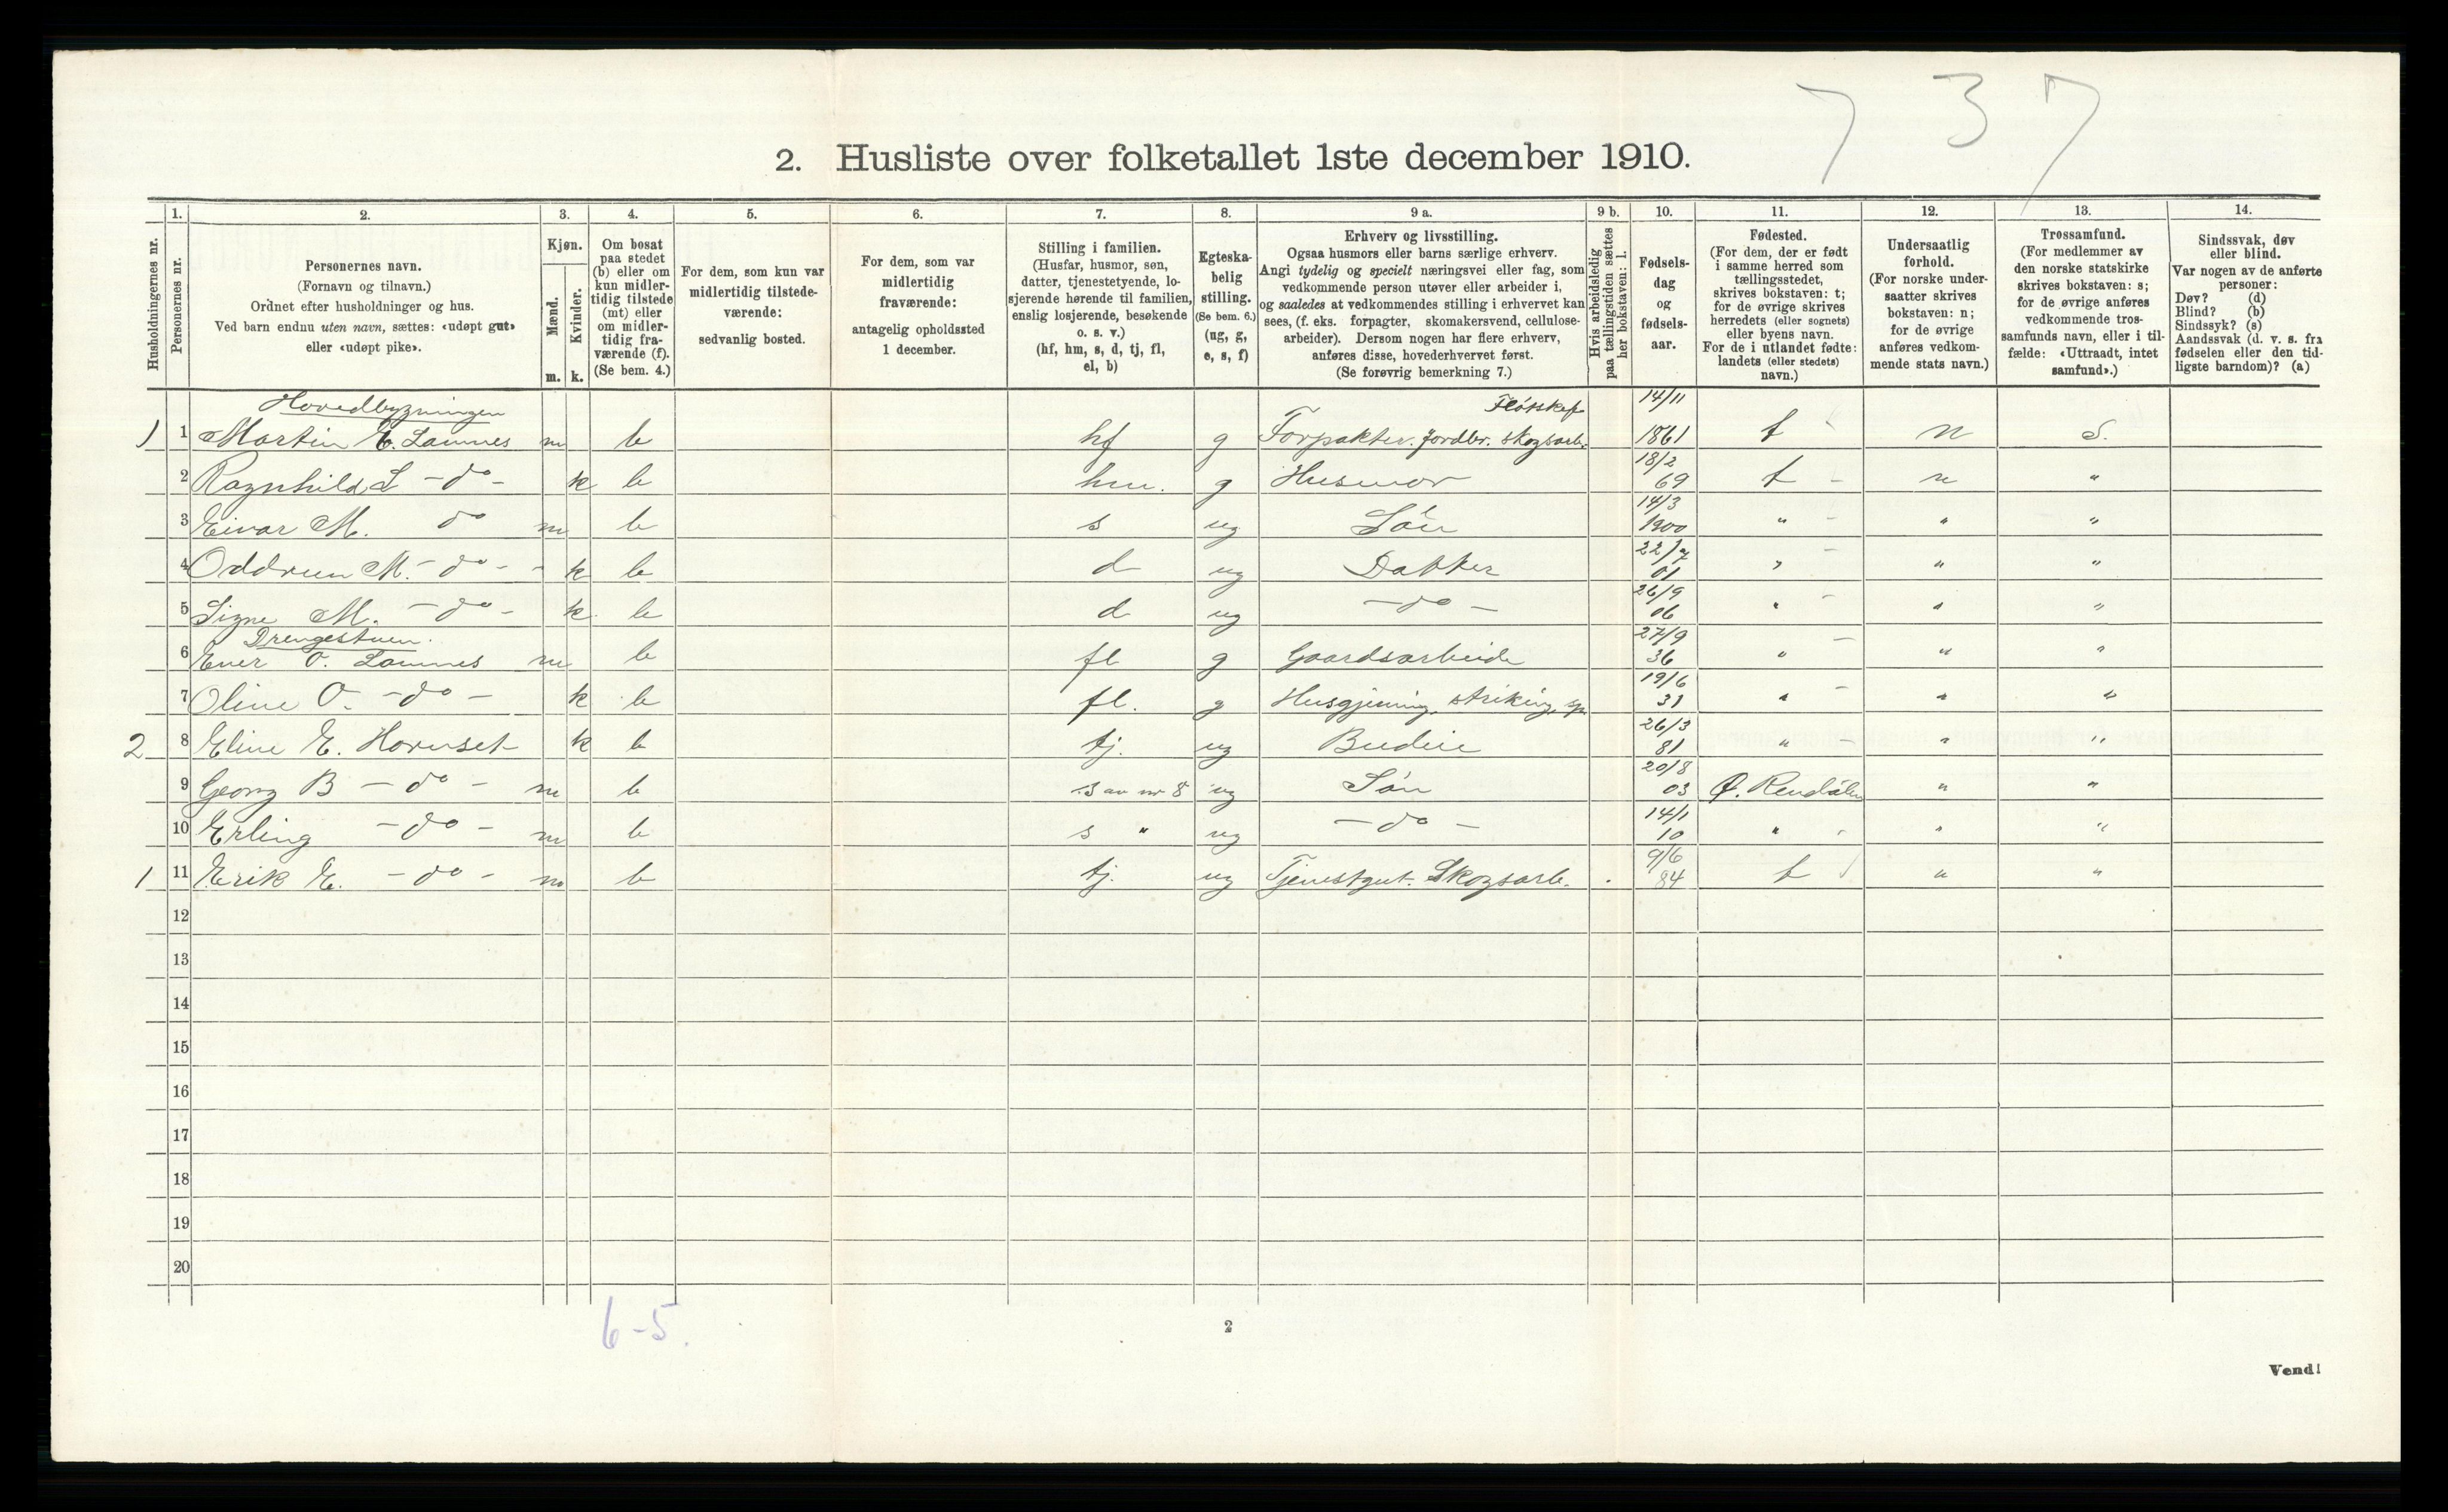 7 3 7
2. Husliste over folketallet 1ste december 1910.
Husholdningernes nr.
1. Personernes nr.
2. Personernes navn.
(Fornavn og tilnavn.)
Ordnet efter husholdninger og hus.
Ved barn endnu uten navn, sættes: «udøpt gut»
eller «udøpt pike».
3. Kjøn.
Mænd. m.
Kvinder. k.
4. Om bosat
paa stedet
(b) eller om
kun midler-
tidig tilstede
(mt) eller
om midler-
tidig fra-
værende (f).
(Se bem. 4.)
5. For dem, som kun var
midlertidig tilstede-
værende:
sedvanlig bosted.
6. For dem, som var
midlertidig
fraværende:
antagelig opholdssted
1 december.
7. Stilling i familien.
(Husfar, husmor, søn,
datter, tjenestetyende, lo-
sjerende hørende til familien,
enslig losjerende, besøkende
o. s. v.)
(hf, hm, s, d, tj, fl,
el, b)
8. Egteska-
belig
stilling.
(Se bem. 6.)
(ug, g,
e, s, f)
9 a. Erhverv og livsstilling.
Ogsaa husmors eller barns særlige erhverv.
Angi tydelig og specielt næringsvei eller fag, som
vedkommende person utøver eller arbeider i,
og saaledes at vedkommendes stilling i erhvervet kan
sees, (f. eks. forpagter, skomakersvend, cellulose-
arbeider). Dersom nogen har flere erhverv,
anføres disse, hovederhvervet først.
(Se forøvrig bemerkning 7.)
9 b. Hvis arbeidsledig
paa tællingstiden sættes
her bokstaven: l.
10. Fødsels-
dag
og
fødsels-
aar.
11. Fødested.
(For dem, der er født
i samme herred som
tællingsstedet,
skrives bokstaven: t;
for de øvrige skrives
herredets (eller sognets)
eller byens navn.
For de i utlandet fødte:
landets (eller stedets)
navn.)
12. Undersaatlig
forhold.
(For norske under-
saatter skrives
bokstaven: n;
for de øvrige
anføres vedkom-
mende stats navn.)
13. Trossamfund.
(For medlemmer av
den norske statskirke
skrives bokstaven: s;
for de øvrige anføres
vedkommende tros-
samfunds navn, eller i til-
fælde: «Uttraadt, intet
samfund».)
14. Sindssvak, døv
eller blind.
Var nogen av de anførte
personer:
Døv? (d)
Blind? (b)
Sindssyk? (s)
Aandssvak (d. v. s. fra
fødselen eller den tid-
ligste barndom)? (a)
Hovedbygningen
1 1 Martin E. Lomnes m b hf g Forpakter. Jordbr. Skogsarb. 14/11 1861 t n S.
2 Ragnhild L -do- k b hm. g Husmor 18/2 69 t - n "
3 Eivar M. do m b s ug Søn 14/3 1900 " - " "
4 Oddrun M. -do- k b d ug Datter 22/7 01 " - " "
5 Signe M. -do- k b d ug -do- 26/9 06 " - " "
Drengestuen.
6 Ener O. Lomnes m b fl g Gaardsarbeide 27/9 36 " - " "
7 Oline O. -do- k b fl. g Husgjerning, 19/6 31 " - " "
2 8 Eline E. Hornset k b tj. ug Budeie 26/3 81 " - " "
9 Georg B -do- m b s av nr 8 ug Søn 20/8 03 Ø. Rendalen " "
10 Erling -do- m b s " ug -do- 14/1 10 " " "
1 11 Erik E. -do- m b tj. ug Tjenestgut. Skogsarb. 9/6 84 t " "
12
13
14
15
16
17
18
19
20
6-5.
2
Vend!